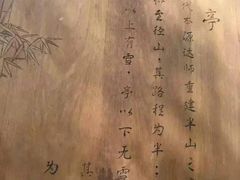 亭
代本源达师重建半山之
至径山，其路程为半；
以上有雪，亭以下无雪
其
为